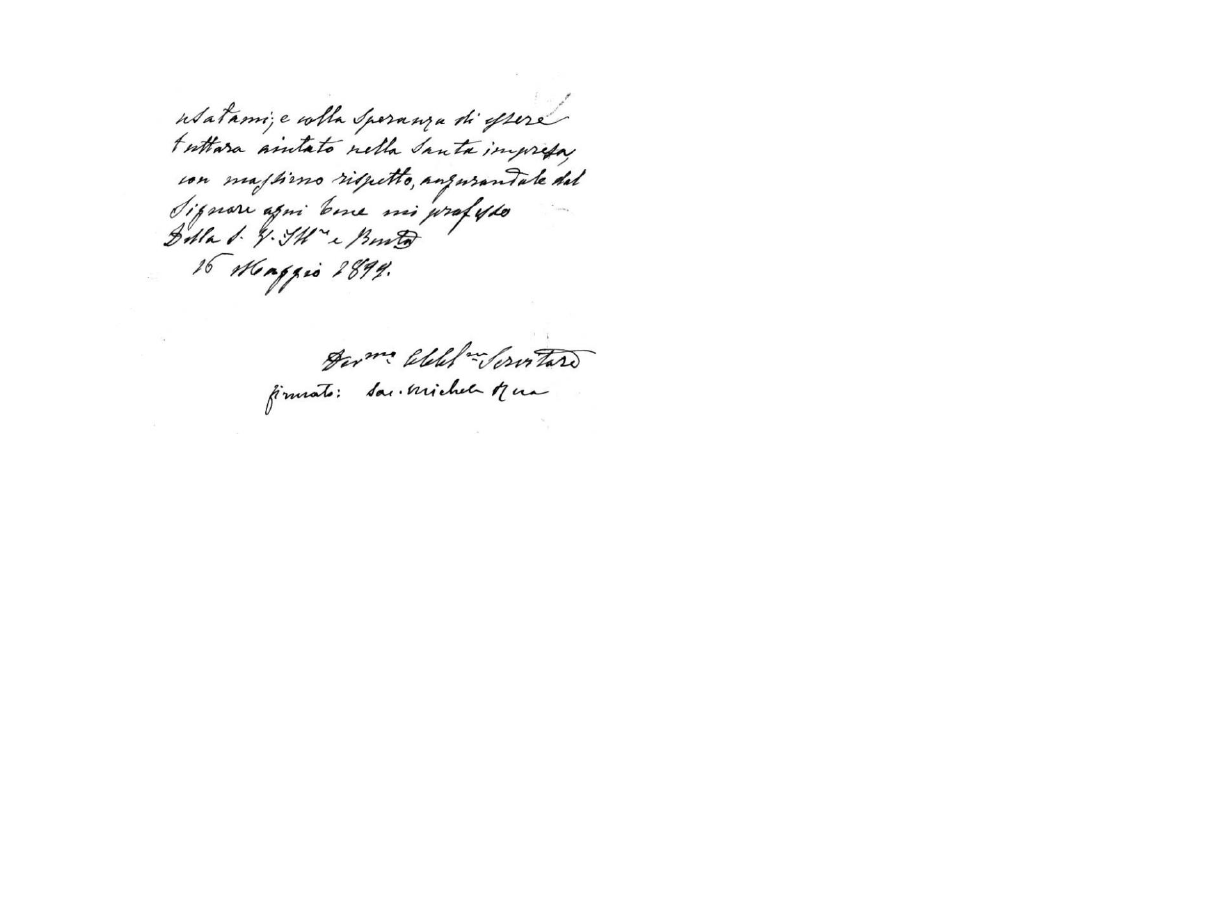 usatami; e colla speranza di essere
tuttora aiutato nella Santa impresa,
con massimo rispetto, augurandole dal
Signore ogni bene mi professo
Della S. V. Ill.ma e Bento
16 Maggio 1899.
Dev.mo Obbl.mo Servitore
firmato: Sac. Michele Rua